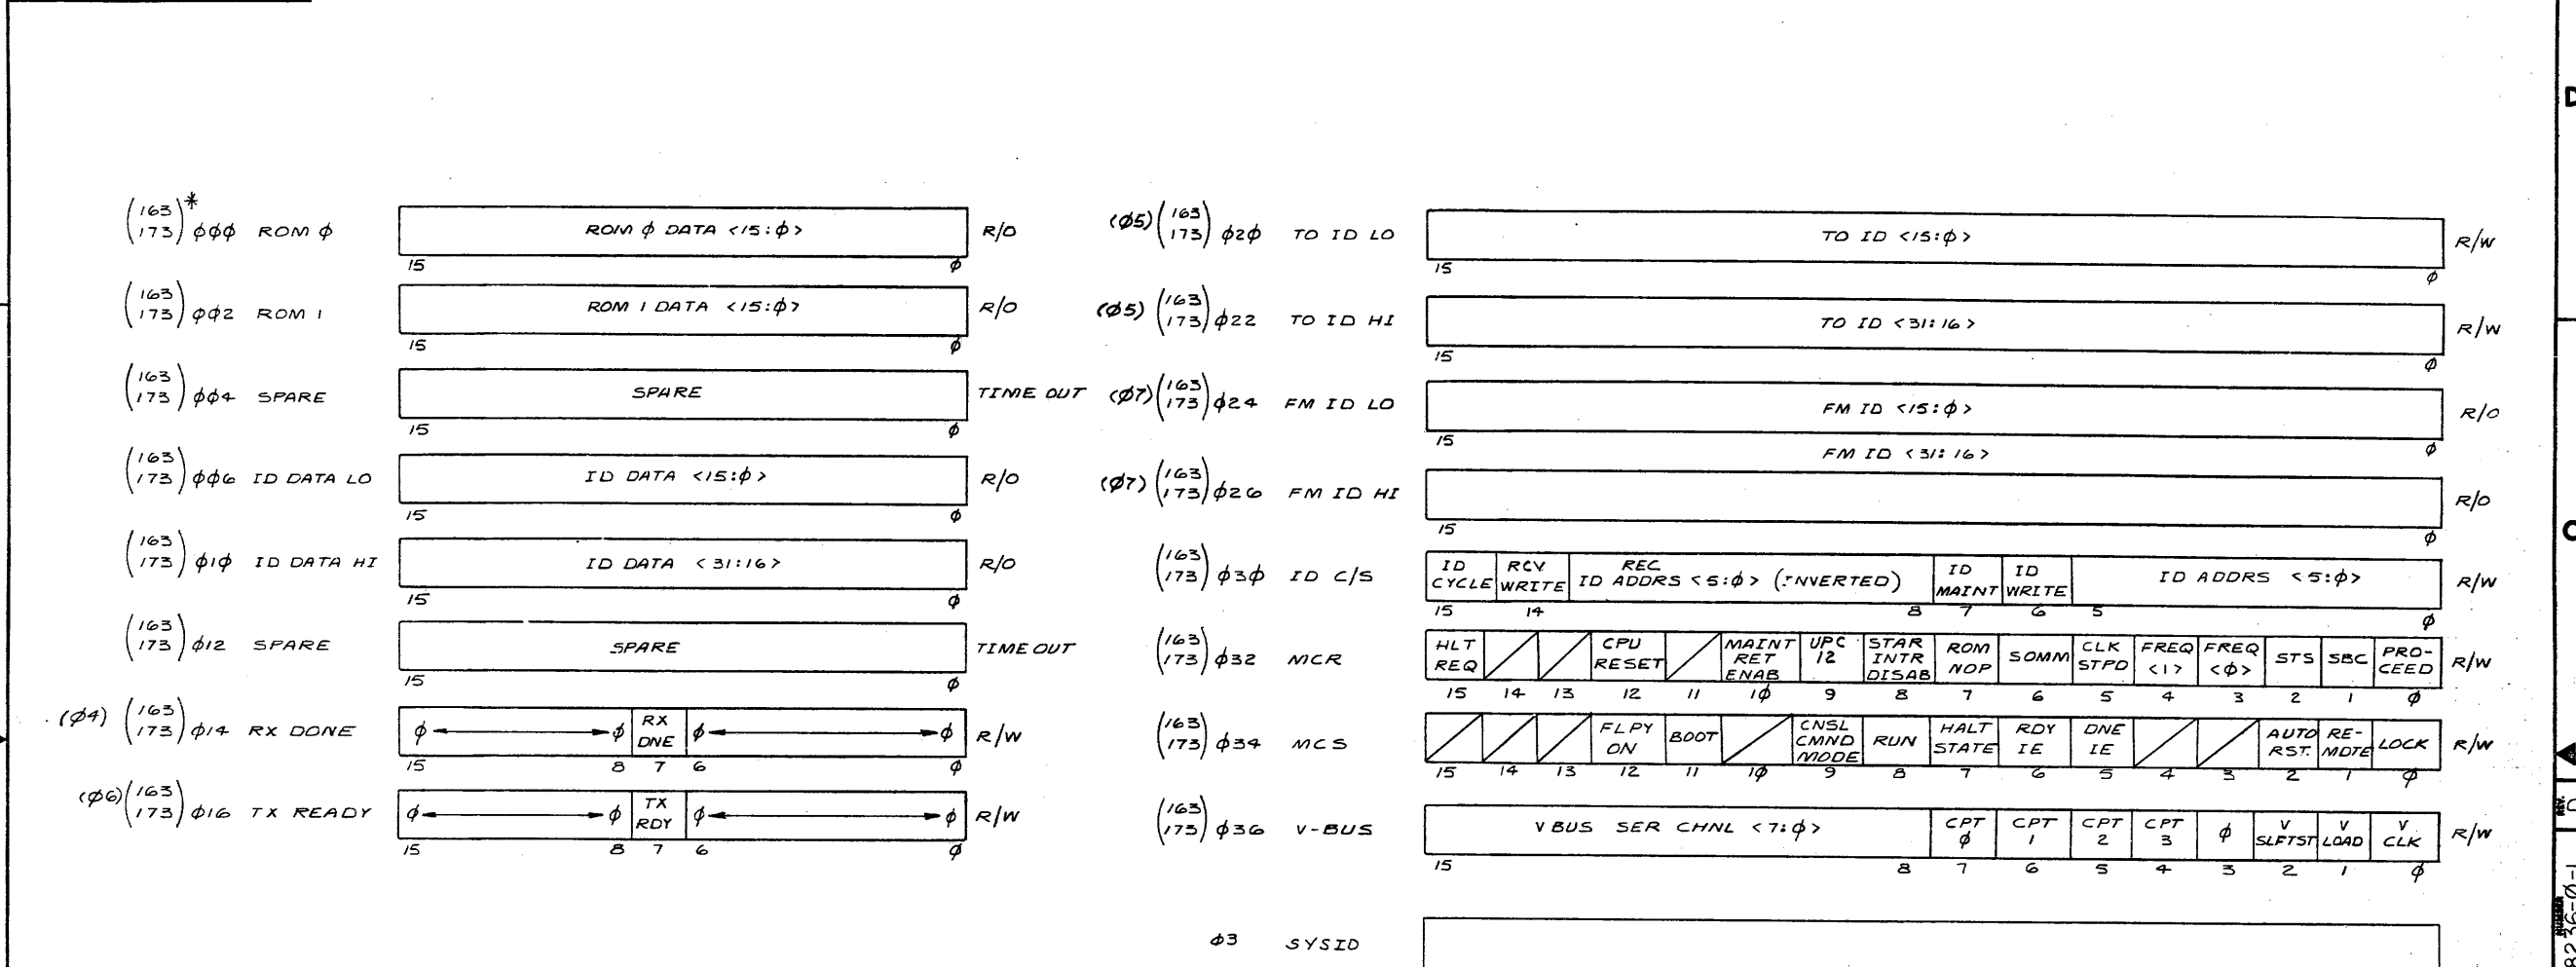 (163)* 
(173) φφφ ROM φ
ROM φ DATA <15:φ>
R/O
15 φ
(163)
(173) φφ2 ROM 1
ROM 1 DATA <15:φ>
R/O
15 φ
(163)
(173) φφ4 SPARE
SPARE
TIME OUT
15 φ
(163)
(173) φφ6 ID DATA LO
ID DATA <15:φ>
R/O
15 φ
(163)
(173) φ1φ ID DATA HI
ID DATA <31:16>
R/O
15 φ
(163)
(173) φ12 SPARE
SPARE
TIME OUT
15 φ
(φ4) (163)
(173) φ14 RX DONE
φ φ RX DNE φ φ
R/W
15 8 7 6 φ
(φ6) (163)
(173) φ16 TX READY
φ φ TX RDY φ φ
R/W
15 8 7 6 φ
(φ5) (163)
(173) φ2φ TO ID LO
TO ID <15:φ>
R/W
15 φ
(φ5) (163)
(173) φ22 TO ID HI
TO ID <31:16>
R/W
15 φ
(φ7) (163)
(173) φ24 FM ID LO
FM ID <15:φ>
R/O
15 φ
FM ID <31:16>
(φ7) (163)
(173) φ26 FM ID HI
R/O
15 φ
(163)
(173) φ3φ ID C/S
ID CYCLE RCV WRITE REC ID ADDRS <5:φ> (INVERTED) ID MAINT ID WRITE ID ADDRS <5:φ>
R/W
15 14 8 7 6 5 φ
(163)
(173) φ32 MCR
HLT REQ CPU RESET MAINT RET ENAB UPC 12 STAR INTR DISAB ROM NOP SOMM CLK STPD FREQ <1> FREQ <φ> STS SBC PRO-CEED
R/W
15 14 13 12 11 1φ 9 8 7 6 5 4 3 2 1 φ
(163)
(173) φ34 MCS
FLPY ON BOOT CNSL CMND MODE RUN HALT STATE RDY IE DNE IE AUTO RST. RE-MOTE LOCK
R/W
15 14 13 12 11 1φ 9 8 7 6 5 4 3 2 1 φ
(163)
(173) φ36 V-BUS
V BUS SER CHNL <7:φ> CPT φ CPT 1 CPT 2 CPT 3 φ V SLFTST V LOAD V CLK
R/W
15 8 7 6 5 4 3 2 1 φ
φ3 SYSID
D
C
REV.
NUMBER
8236-φ-1